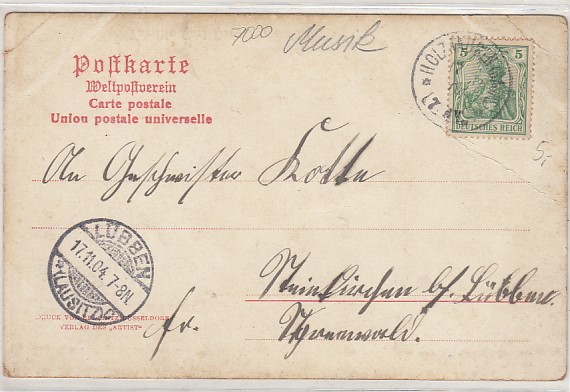 7000 Musik
Postkarte
Weltpostverein
Carte postale
Union postale universelle
5
DEUTSCHES REICH
5,
An Geschwister Kotte
LÜBBEN
17.11.04. 7-8N.
*(LAUSITZ)
Steinkirchen b. Lübben.
fr. Spreewald.
DRUCK VON DÜSSELDORF
VERLAG DES „ARTIST"